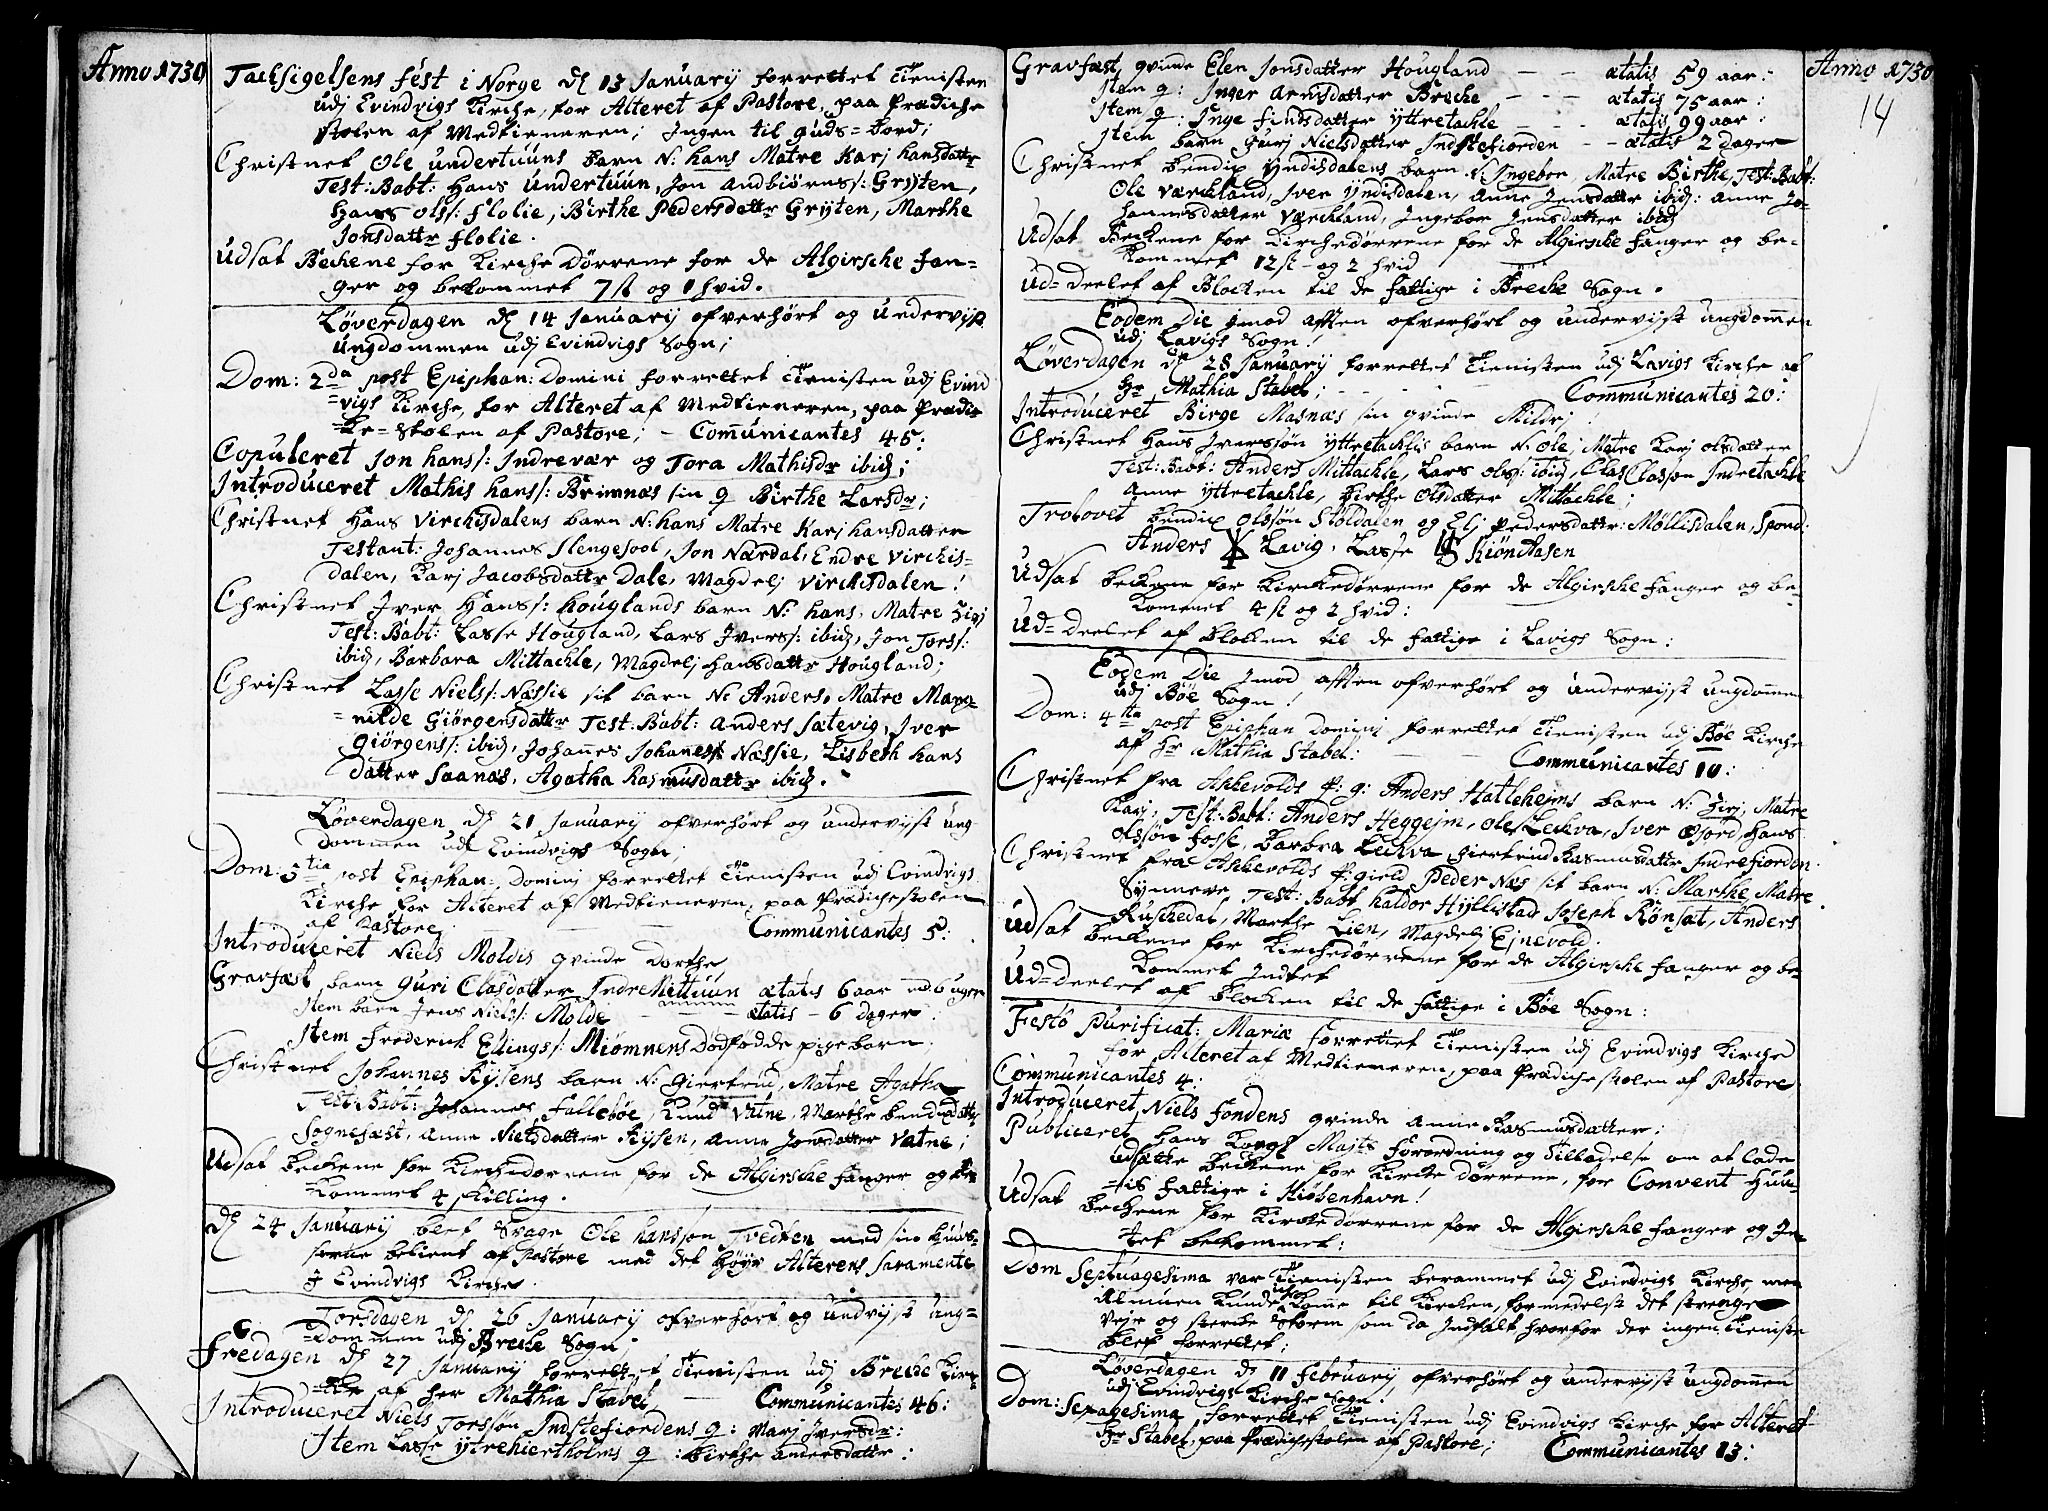 Anno 1730
Tacksigelsens fest i Norge dl 13 Januarij forrettet Tienisten
udj Evindvigs Kirche, for Alteret af Pastore, paa Prædiche
stolen af Medtieneren; Ingen til Guds=bord;
Christnet Ole Undertuuns barn N: hans Matre Karj hansdattr
Test: Babt: Hans Undertuun, Jon Andbiørns/: Gryten,
Hans Ols/: flolie, Birthe Pedersdattr Gryten, Marthe
Jonsdattr flolie.
Udsat Beckene for Kirche Dørrene for de Algirsche fan=
ger og bekommet 7 ß og 1 hvid.
Løverdagen dl 14 Januarij ofverhørt og undervijst
ungdommen udj Evindvigs Sogn;
Dom: 2da post Epiphan: Domini forrettet Tienisten udj Evind
=vigs Kirche, for Alteret af Medtieneren, paa Prædic
=ke=stolen af Pastore; – Communicantes 45:
Copuleret Jon hans/: Indrevær og Tora Mathisdr ibid;
Introduceret Mathis hans/: Brimnæs sin q Birthe Larsdr;
Christnet Hans Virchisdalens barn N: hans Matre Karj hansdatter
Testant: Johannes Slengesool, Jon Nærdal, Endre Virchis=
dalen, Karj Jacobsdattr Dale, Magdelj Virchisdalen!
Christnet Iver Hans/: houglands barn N: hans, Matre Zirj
Test: Babt: Lasse Hougland, Lars Ivers/: ibid, Jon Tors/:
ibid, Barbara Mittachle, Magdelj hansdattr Hougland;
Christnet Lasse Niels/: Næssie sit barn N: Anders, Matre Mag=
=nilde Giørgensdatter Test: Babt: Anders sætevig, Iver
Giørgens/: ibid, Johannes Johanes/: Næssie, Lisbeth hans
datter Saanæs, Agatha Rasmusdattr ibid.
Løverdagen dl 21 Januarij ofverhørt og undervijst ung
dommen udj Evindvigs Sogn;
Dom: 3tia post Epiphan: Dominj forrettet Tienisten udj Evindvigs
Kirche for Alteret af Medtieneren, paa Prædichestolen
af Pastore; – – Communicantes 5:
Introduceret Niels Moldis qvinde Dorthe
Gravfæst barn Guri Clasdatter IndreMittuun ætatis 6 aar
Item barn Jens Niels/: Molde – ætatis – 6 dager
Item Frederich Ellings/: Miømnens Dødfødde pigebarn.
Christnet Johannes Rysens barn N: Giertrud, Matre Agatha
Test: Babt: Johannes Fallebøe, Knud Vatne, Marthe bendixdattr
Sognefæst, Anne Nielsdatter Rysen, Anne Jonsdatter Vatne;
Udsat Beckene for Kirchedørrene for de Algirsche fanger og be
=kommet 4 skilling.
dl 24 Januarij blef Svage Ole hanssøn Tvedten med sin hues=
true betient af Pastore med det høyr Alterens Saramente
J Evindvigs Kirche.
Torsdagen dl 26 Januarij ofverhørt og undvijst ung=
=dommen udj Breche Sogn;
Fredagen dl 27 Januarij forrettet Tienisten udj Breche Kir=
=ke af her Mathia Stabel, – Communicantes 46:
Introduceret Niels Torssøn Indstefiordens q: Marj Iversdr:
Item Lasse ytrehiertholms q: birthe andersdatter:
Anno 1730
14
Gravfæst qvinde Elen Jonsdatter Hougland – – ætatis 59 aar:
Item q: Inger Arnisdatter Breche – – – ætatis 75 aar:
Item q: Inge findsdatter yttretachle – – ætatis 99 aar:
Item barn Gurj Nielsdatter Indstefiorden – – ætatis 2 dager
Christnet bendix Yndisdalens barn N: Ingebor, Matre Birthe, Test: Babt:
Ole Værckland, Iver Yndisdalen, Anne Jensdatter ibid: Anne Jo=
hannesdatter Værckland, Ingebor Jensdatter ibid
Udsat Beckene for Kirchedørrene for de Algirsche fanger og be=
kommet 12 ß – og 2 hvid
Ud=deelet af Blocken til de fattige i Breche Sogn.
Eodem Die imod afften ofverhørt og undervijst ungdommen
udj Lavigs Sogn!
Løverdagen dl 28 Januarij forrettet Tienisten udj Lavigs Kirche af
Hr Mathia Stabel; – – Communicantes 20:
Introduceret Birge Masnæs sin qvinde Mildrj
Christnet Hans Iverssøn yttretachlis barn N: Ole, Matre Karj olsdatter
Test: Babt: Anders Mittachle, Lars ols/: ibid, Clas Classøn Indretachle
Anne yttretachle, Birthe olsdatter Mittachle;
Trolovet bendix olssøn Støldalen og Elj Pedersdattr: Møllisdalen, Spond:
Anders Lavig, Lasse Kiøndaasen
Udsat beckene for Kirckedørrene for de Algirsche fanger og be=
kommet 4 ß og 2 hvid:
Ud=deelet af blocken til de fattige i Lavigs Sogn:
Eodem Die imod afften ofverhørt og undervijst ungdommen
udj Bøe Sogn!
Dom: 4ta post Epiphan Dominj forrettet Tienisten udj Bøe Kirche
af Hr Mathia Stabel: – – Communicantes 10:
Christnet fra Askevolds P: g: Anders Hatlehejms barn N: Zirj, Matre
Karj, Test: Babt: Anders Heggejm, Ole Leckva, Iver Osjord, Hans
olssøn fosse, Barbra Leckva, Giertrud Rasmusdattr Indrefiorden.
Christnet fra Askevolds P: gield Peder Næs sit barn N: Marthe, Matre
Synneve, Test: Babt haldor Hyllistad Joseph Rønsat, Anders
Ruschedal, Marthe Lien, Magdelj Ejnevold.
Udsat beckene for Kirchedørrene for de Algirsche fanger og be=
kommet Indtet
Ud=deelet af blocken til de fattige i Bøe Sogn:
Festô Purificat: Mariæ forrettet Tienisten udj Evindvigs Kirche
for Alteret af Medtieneren, paa Prædichestolen af Pastore
Communicantes 4:
Introduceret Niels fondens qvinde Anne Rasmusdatter;
Publiceret hans Kongl Majts forordning og Tilladelse om at lade
udsætte beckene for Kircke dørrene, for Convent Huu=
=sis fattige i Kiøbenhavn!
Udsat beckene for Kirckedørrene for de Algirsche fanger og In=
tet bekommet:
Dom Septuagesima var Tienisten berammet udj Evindvigs Kirche, men
Almuen kunde icke komme til Kircken, formedelst det strenge
veje og sterke storm som da Indfalt hvorfor der ingen Tieniste
blef forrettet;
Løverdagen dl 11 February, ofverhørt og undervijst ungdommen
udj Evindvigs Kirche Sogn.
Dom: Sexagesima, forrettet Tienisten udj Evindvigs Kirche for Alteret
Hr Stabel, paa Prædichestolen af Pastore; Communicantes 13:
Anno 1730